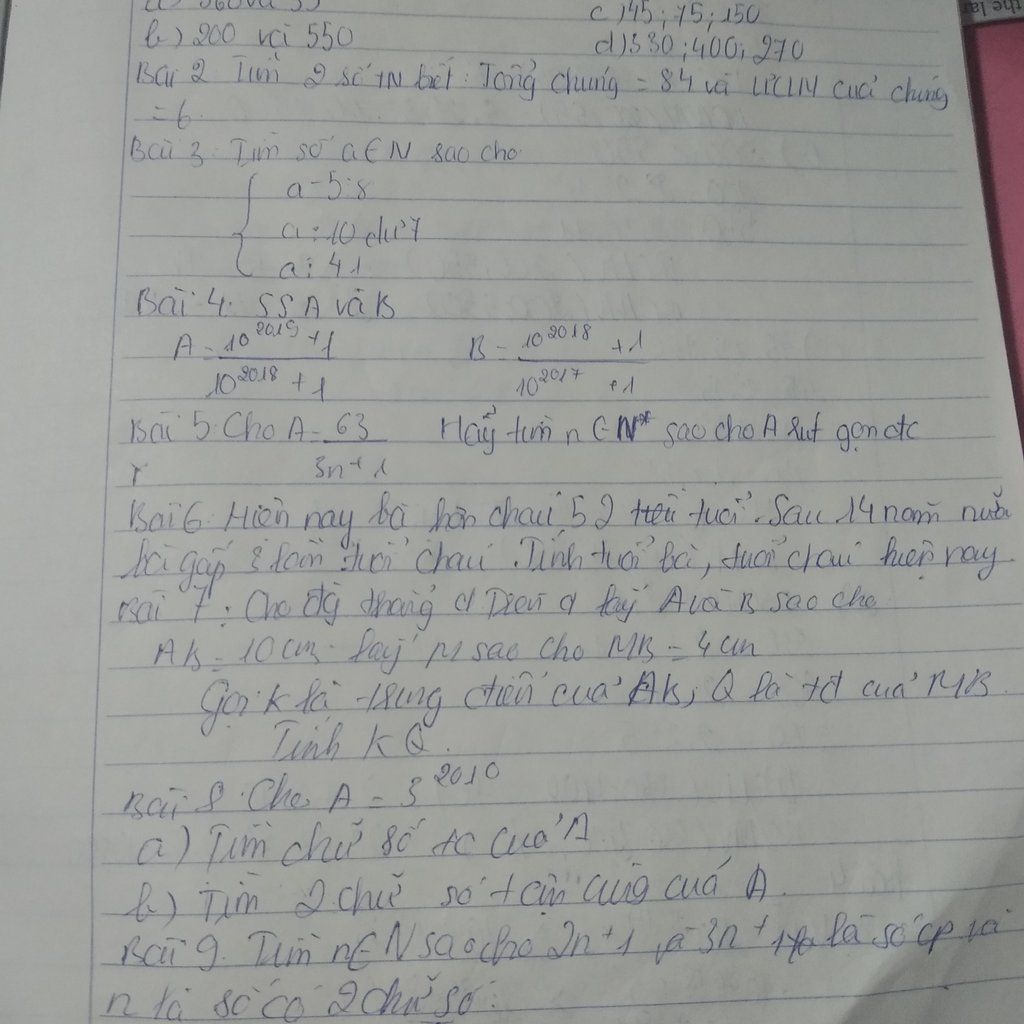 a) 360 và 35
c) 45; 75; 150
b) 200 và 550
d) 330; 400; 270
Bài 2 Tìm 2 số TN biết: Tổng chúng = 84 và ƯCLN của chúng
= 6.
Bài 3 Tìm số a∈N sao cho
a - 5⋮8
a : 10 dư 7
a ⋮ 41
Bài 4: SS A và B
A = (10^2019 + 1)/(10^2018 + 1) B = (10^2018 + 1)/(10^2017 + 1)
Bài 5 Cho A = 63/(3n + 1) Hãy tìm n ∈ N* sao cho A rút gọn đc
Bài 6. Hiện nay bà hơn cháu 52 tuổi. Sau 14 năm nữa
bà gấp 3 lần tuổi cháu. Tính tuổi bà, tuổi cháu hiện nay
Bài 7: Cho đg thẳng d Trên d lấy A và B sao cho
AB = 10 cm. lấy M sao cho MB = 4 cm
Gọi K là trung điểm của AB, Q là tđ của MB.
Tính KQ.
Bài 8. Cho A = 3^2010
a) Tìm chữ số tc của A
b) Tìm 2 chữ số tận cùng của A.
Bài 9. Tìm n∈N sao cho 2n + 1 và 3n + 1 là số cp và
n là số có 2 chữ số.
the lar